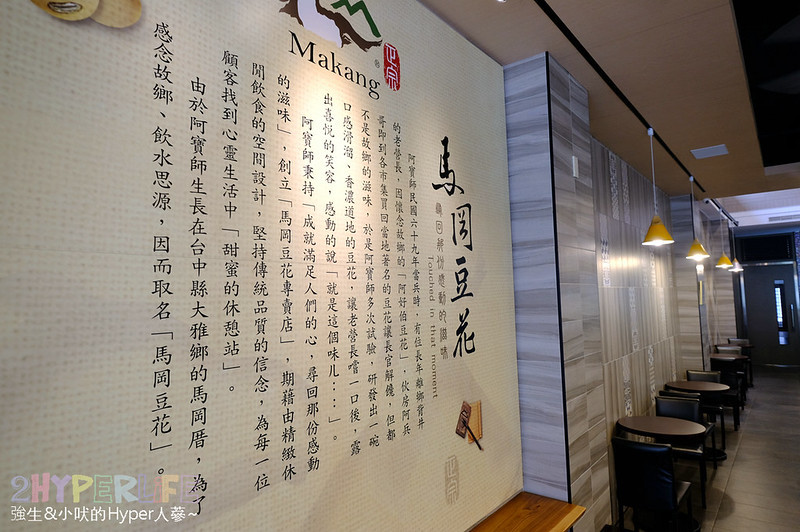 Makang
®
正宗
馬岡豆花
尋回那份感動的滋味
Touched in that moment
阿寶師民國六十九年當兵時，有位長年離鄉背井
的老營長，因懷念故鄉的「阿好伯豆花」，伙房阿兵
哥即到各市集買回當地著名的豆花讓長官解饞，但都
不是故鄉的滋味，於是阿寶師多次試驗，研發出一碗
口感滑溜、香濃道地的豆花，讓老營長嚐一口後，露
出喜悅的笑容，感動的說「就是這個味儿…」。
阿寶師秉持「成就滿足人們的心，尋回那份感動
的滋味」，創立「馬岡豆花專賣店」，期藉由精緻休
閒飲食的空間設計，堅持傳統品質的信念，為每一位
顧客找到心靈生活中「甜蜜的休憩站」。
由於阿寶師生長在台中縣大雅鄉的馬岡厝，為了
感念故鄉、飲水思源，因而取名「馬岡豆花」。
正宗
2HYPERLIFE
強生&小吠的Hyper人蔘~